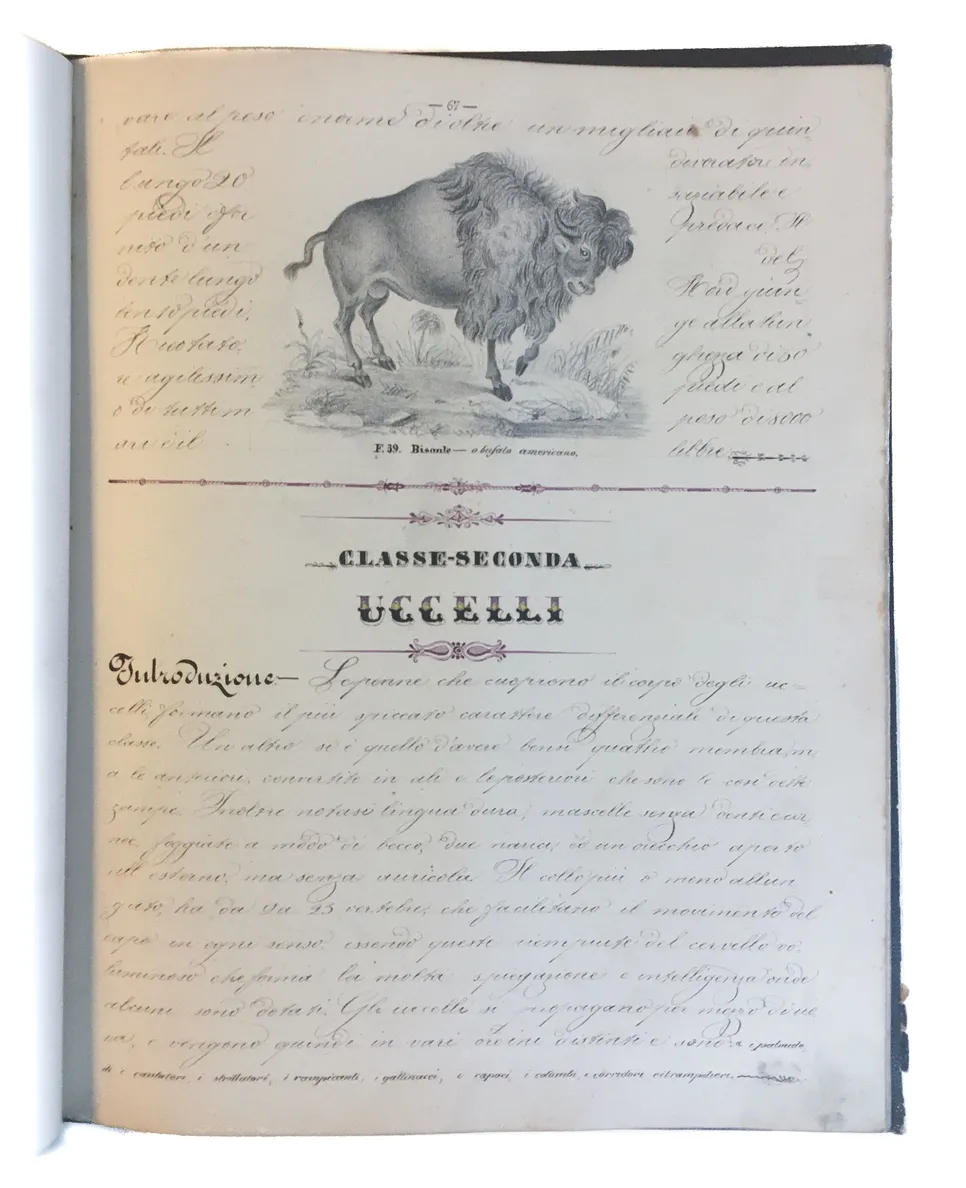 — 67 —
vare al peso enorme d'oltre un migliaio di quin
tali. Il
lungo 20
piedi for
nito d'un
dente lungo
piedi,
re agilissim
o di tutti m
ari é il
divoratore in
saziabile e
predace. Il
del
Nord giun
ge alla lun
ghezza di 30
piedi e al
peso di 8000
libbre
F. 39. Bisonte — o bufalo americano.
CLASSE-SECONDA
UCCELLI
Introduzione — Le penne che cuoprono il corpo degli uc-
celli, formano il più spiccato carattere differenziale di questa
classe. Un altro si è quello d'avere benri quattro membra, m
a le anteriori, convertite in ali e le posteriori che sono le così dette
zampe. Inoltre notasi lingua dura; mascelle senza denti car
nee, foggiate a modo di becco, due narici, ed un orecchio aperto
all'esterno, ma senza auricola. Il collo più o meno allun
gato, ha da 9 a 23 vertebre, che facilitano il movimento del
capo in ogni senso, essendo questi riempiuti del cervello vo
luminoso che forma la molta spiegazione e intelligenza onde
alcuni sono dotati. Gli uccelli si propagano per mezzo di uo
va, e vengono quindi in vari ordini distinti e sono i palmide
di i cantatori, i strillatori, i rampicanti, i gallinacci, i rapaci, i colombi, i corridori ei trampolieri.